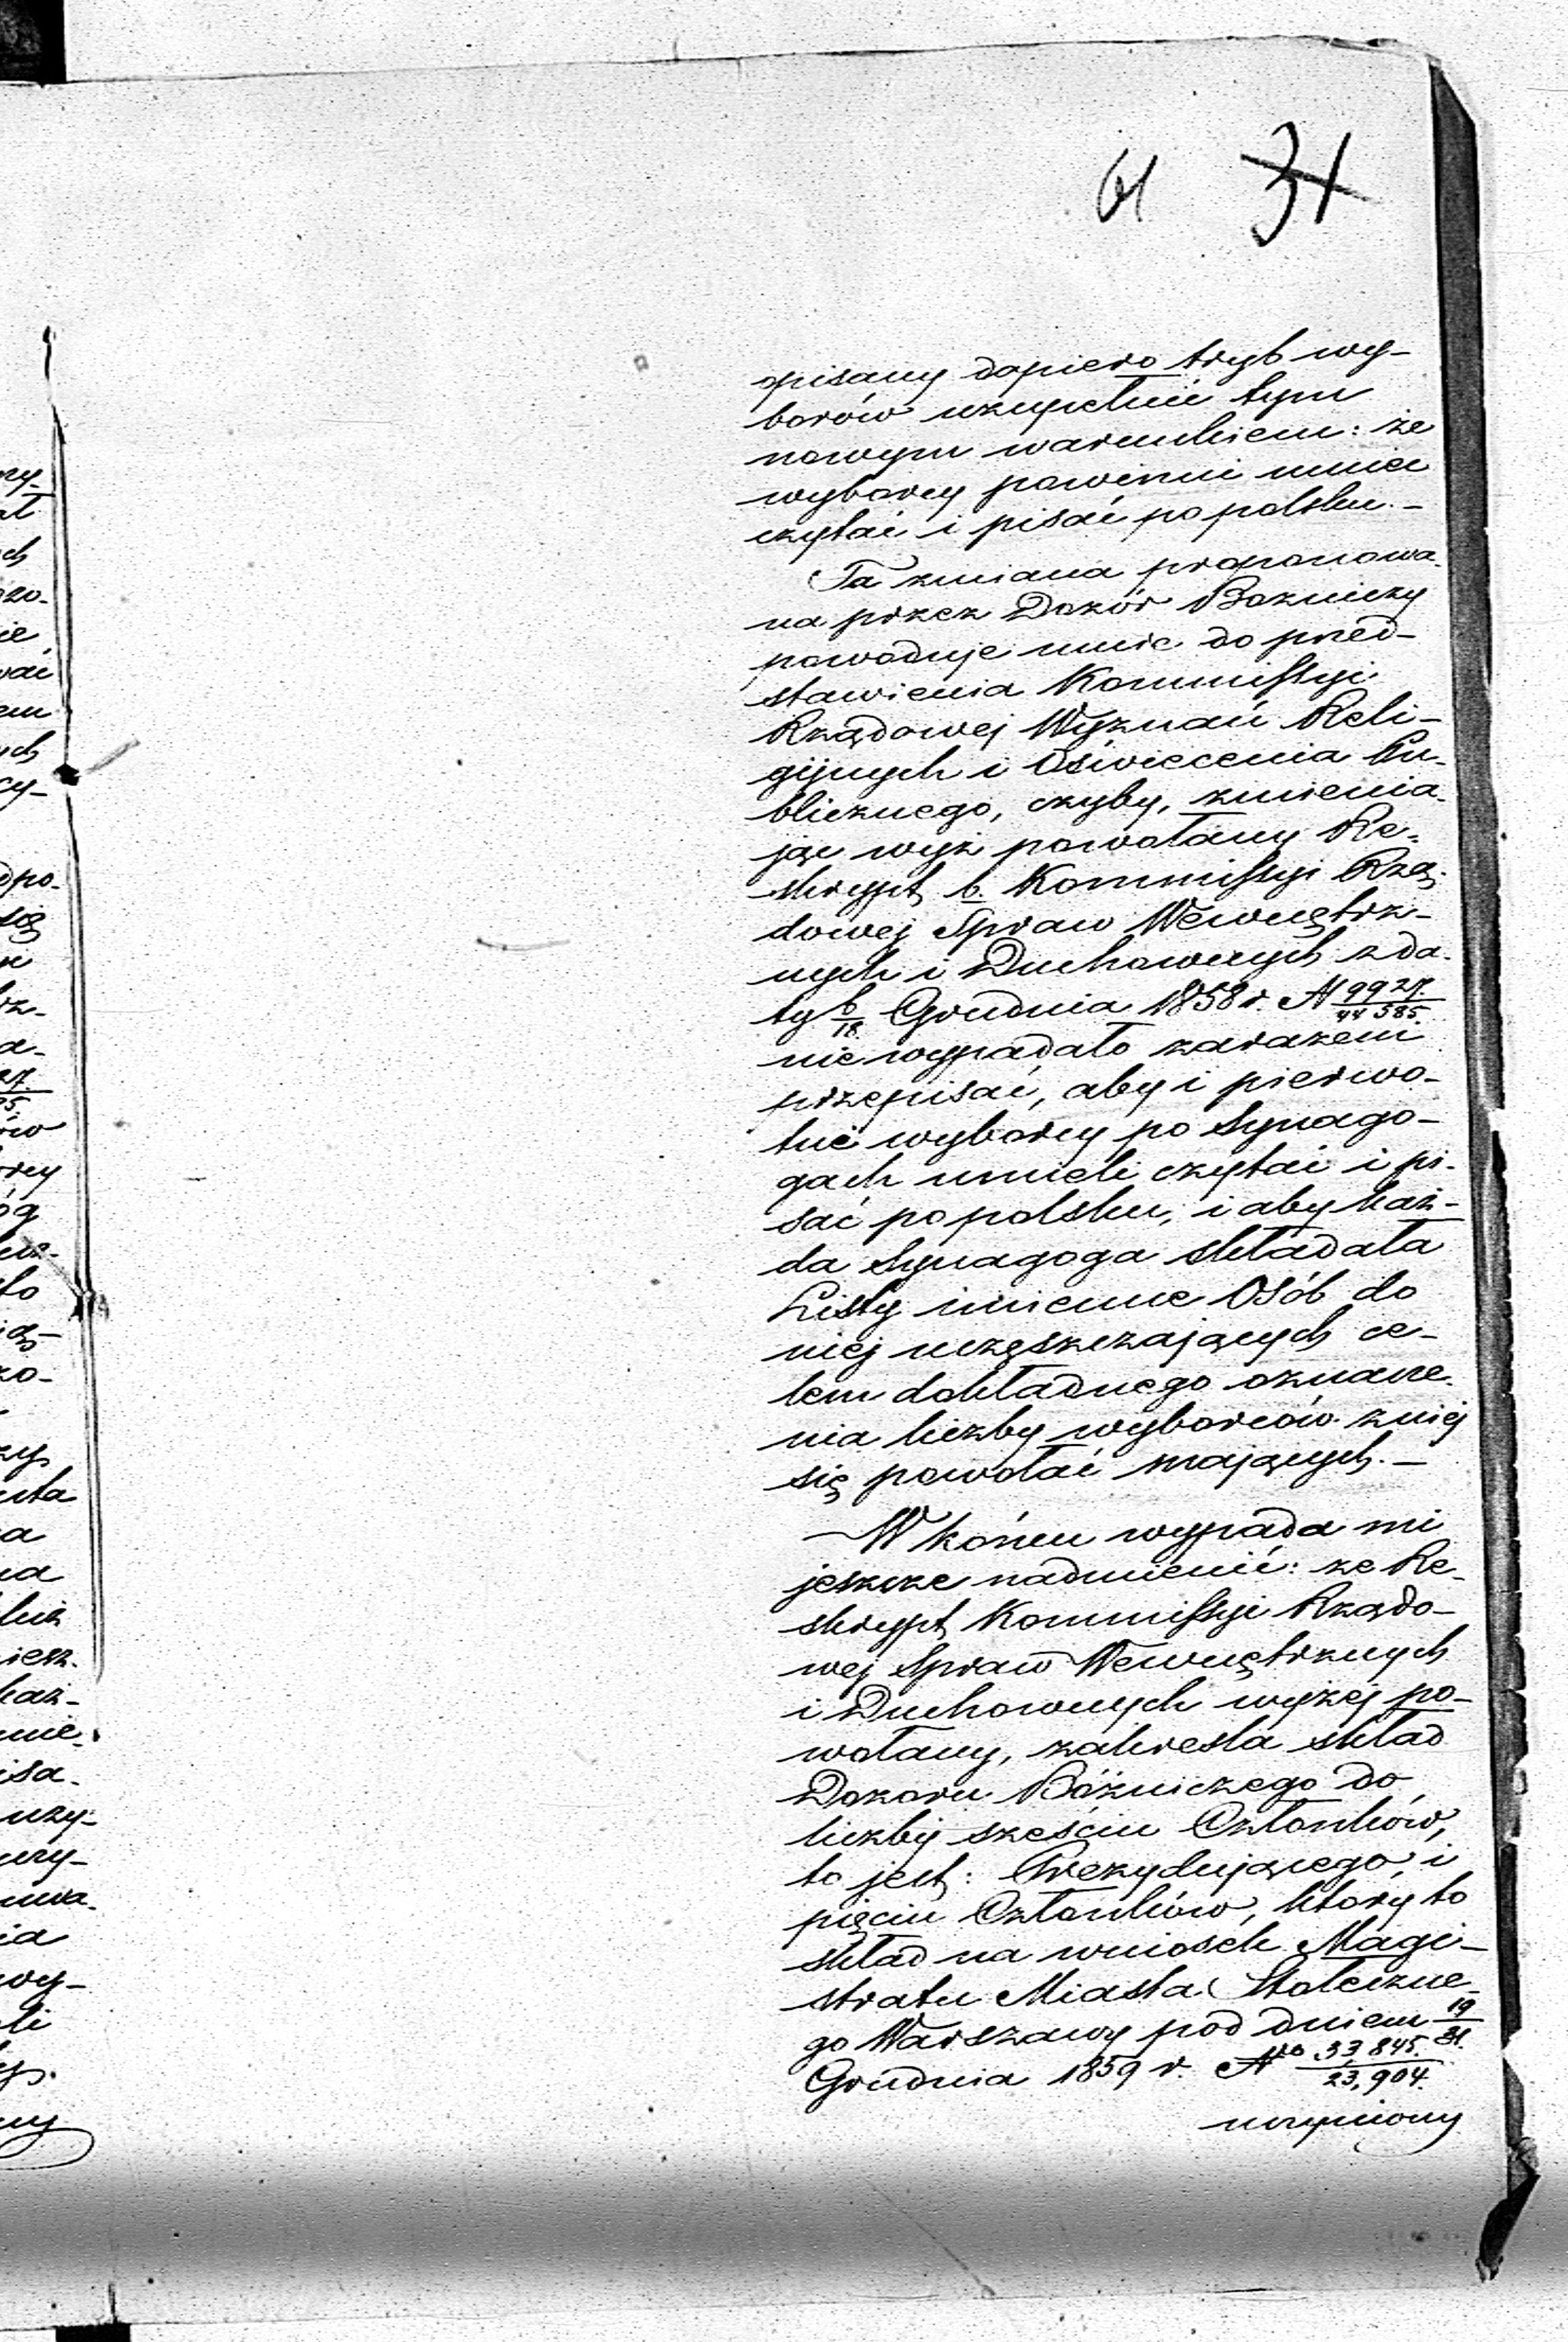 61 31
opisany dopiero tryb wy-
borów uzupełnić tym
nowym warunkiem: że
wyborcy powinni umieć
czytać i pisać po polsku.-
Ta zmiana proponowa-
na przez Dozór Bożniczy
powoduje mnie do przed-
stawienia Kommissyi
Rządowej Wyznań Reli-
gijnych i Oświecenia Pu-
blicznego, czyby, zmienia-
jąc wyż powołany Re-
skrypt b. Kommissyi Rzą-
dowej Spraw Wewnętrz-
nych i Duchownych z da-
ty 6/18 Grudnia 1858 r. N 9927/44585
nie wypadało zarazem
przepisać, aby i pierwo-
tni wyborcy po Synago-
gach umieli czytać i pi-
sać po polsku, i aby każ-
da Synagoga składała
Listy imienne Osób do
niej uczęszczających ce-
lem dokładnego oznacze-
nia liczby wyborców z niej
się powołać mających.-
W końcu wypada mi
jeszcze nadmienić: że Re-
skrypt Kommissyi Rządo-
wej Spraw Wewnętrznych
i Duchownych wyżej po-
wołany, zakreśla skład
Dozoru Bóżniczego do
liczby sześciu Członków,
to jest: Prezydującego, i
pięciu Członków, który to
skład na wniosek Magi-
stratu Miasta Stołeczne-
go Warszawy pod dniem 19/31
Grudnia 1859 r. Nro 33,845/23,904
uczyniony